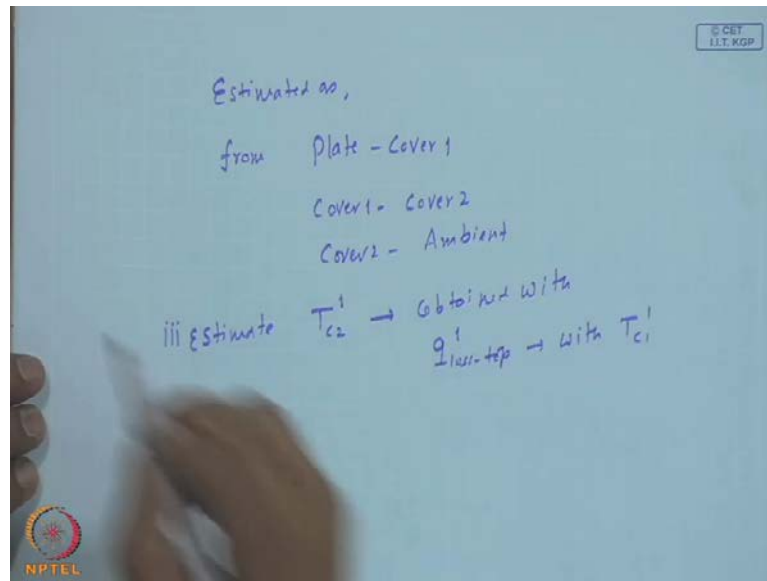 © CET
I.I.T. KGP
Estimated as,
from Plate - Cover 1
Cover 1 - Cover 2
Cover 2 - Ambient
iii Estimate T¹c2 → Obtained with
q¹loss-top → with Tc1¹
NPTEL